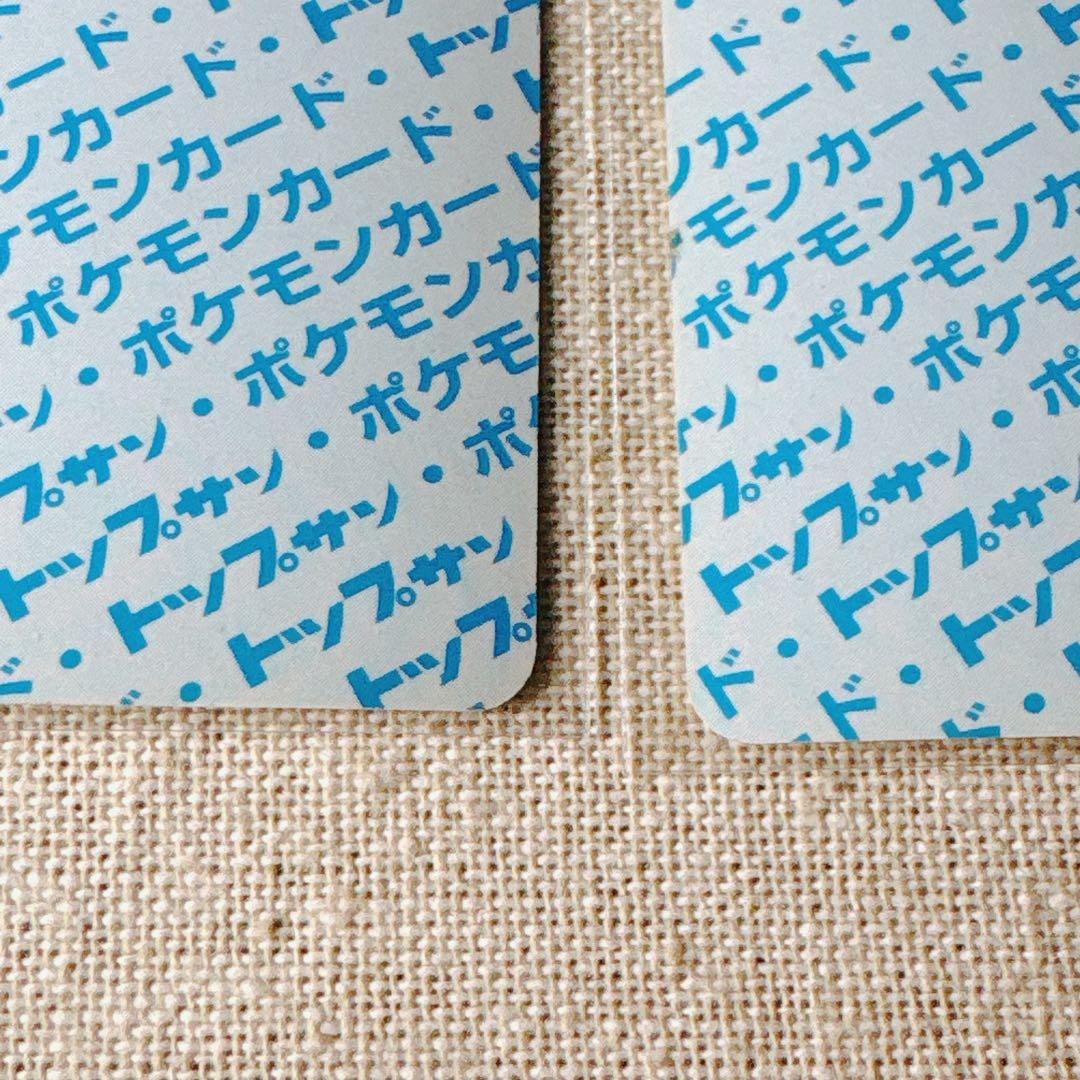 ード
ンカード・ト
ケモンカード・トッ
ポケモンカード・ト
ン・ポケモンカード
プサン・ポケモンカ
トップサン・ポケモ
ド・トップサン・ポ
・トップサン
トップ
ド・
カード・
モンカード・
ポケモンカード
ン・ポケモンカ
プサン・ポケモ
トップサン・ポ
ド・トップサン
ド・トップ
ド・